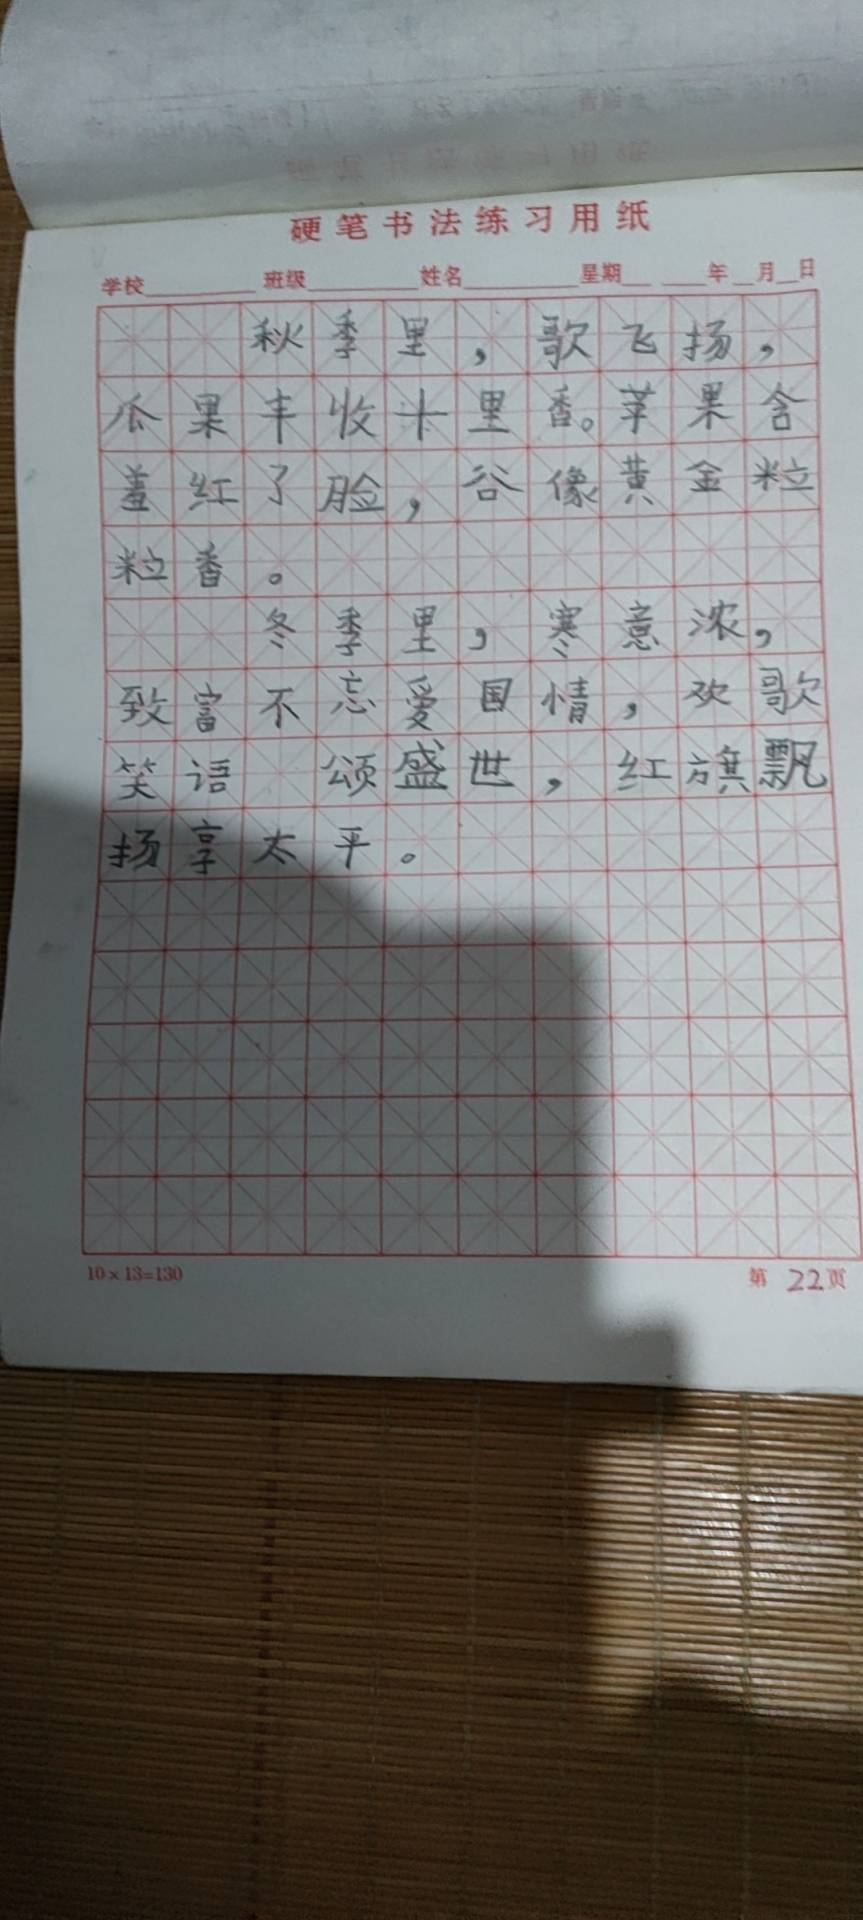 硬笔书法练习用纸
学校 班级 姓名 星期 年 月 日
秋季里，歌飞扬，
瓜果丰收十里香。苹果含
羞红了脸，谷像黄金粒
粒香。
冬季里，寒意浓，
致富不忘爱国情，欢歌
笑语 颂盛世，红旗飘
扬享太平。
10×13=130 第 22 页